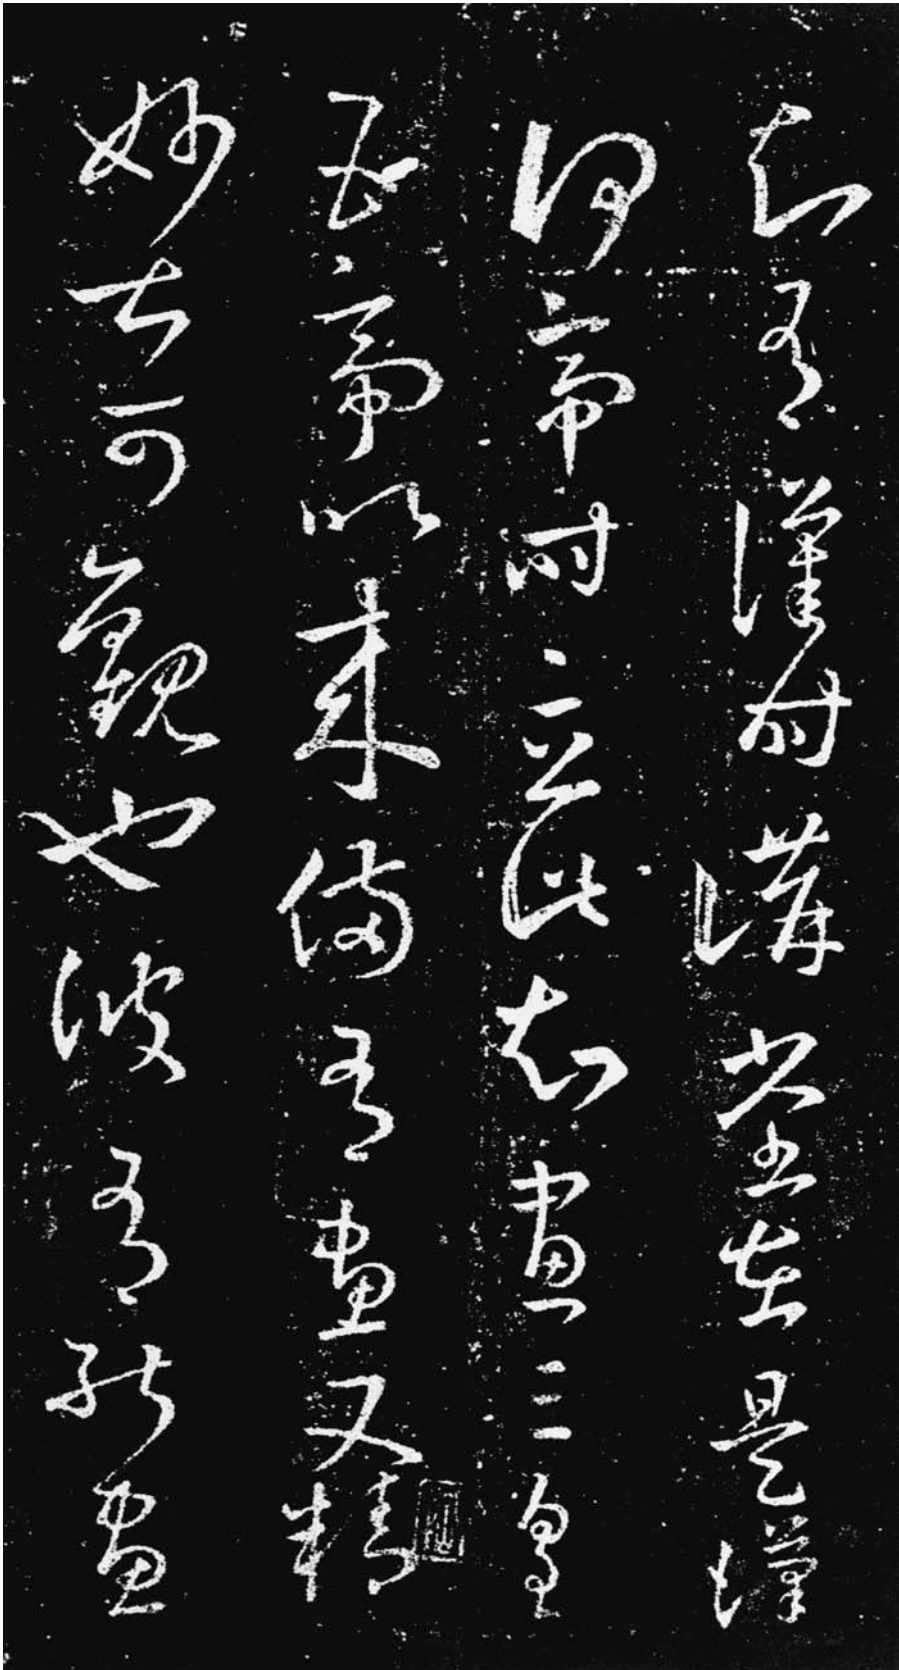 知有漢時講堂在是漢
何帝時立此知畫三皇
五帝以來備有畫又精
妙甚可觀也彼有能畫